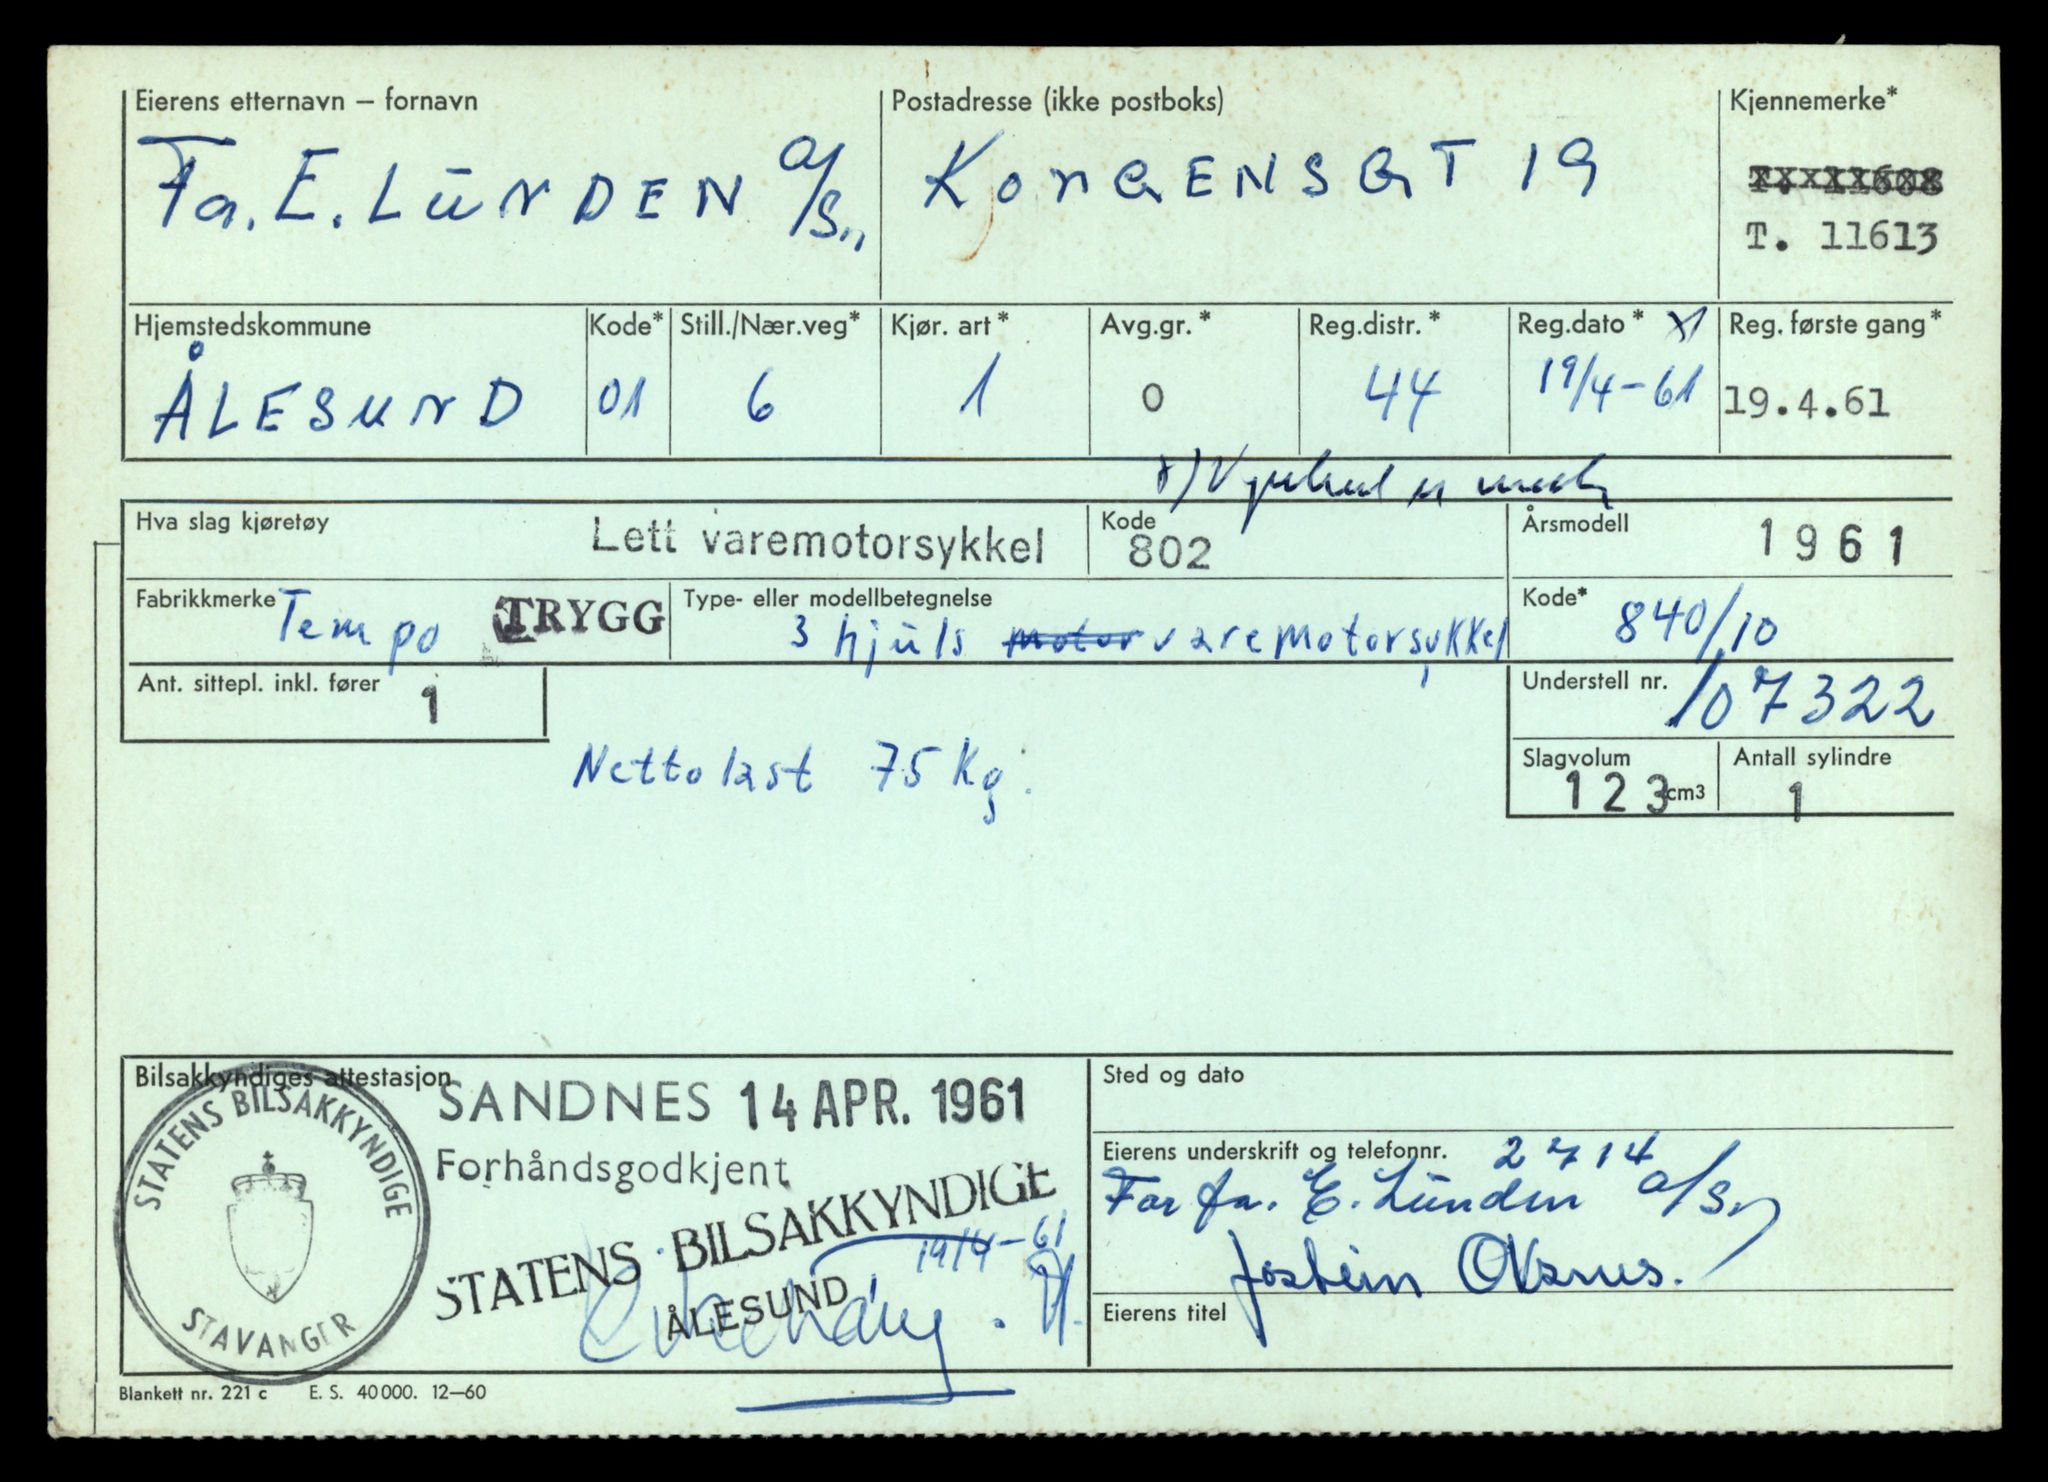 Eierens etternavn – fornavn
Fa. E. LUNDEN a/s.
Postadresse (ikke postboks)
KONGENSGT 19
Kjennemerke*
T. 11608
T. 11613
Hjemstedskommune
ÅLESUND
Kode*
01
Still./Nær.veg*
6
Kjør. art*
1
Avg.gr.*
0
Reg.distr.*
44
Reg.dato* x)
19/4-61
Reg. første gang*
19.4.61
x)
Hva slag kjøretøy
Lett varemotorsykkel
Kode
802
Årsmodell
1961
Fabrikkmerke
Tempo
TRYGG
Type- eller modellbetegnelse
3 hjuls motor varemotorsykkel
Kode*
840/10
Ant. sittepl. inkl. fører
1
Understell nr.
107322
Nettolast 75 Kg.
Slagvolum
123 cm3
Antall sylindre
1
Bilsakkyndiges attestasjon
SANDNES 14 APR. 1961
Forhåndsgodkjent
STATENS BILSAKKYNDIGE
STAVANGER
STATENS BILSAKKYNDIGE
ÅLESUND
19/4-61
Sted og dato
Eierens underskrift og telefonnr.
2714
For fa. E. Lunden a/s.
Jostein
Eierens titel
Blankett nr. 221 c E. S. 40 000. 12—60